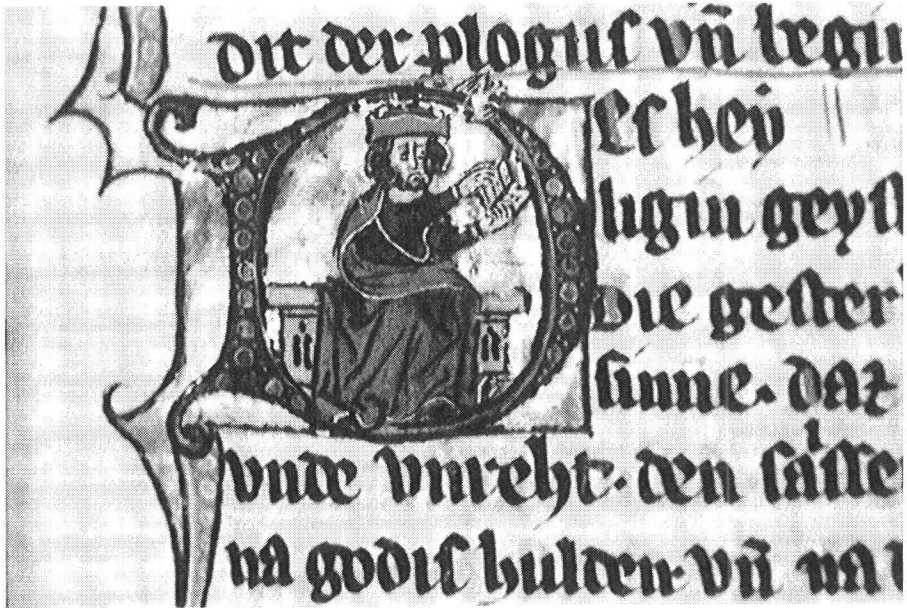 dit der plogus vñ begu
Des hey
ligin geyst
die gester
sinne. daz
vnde vnreht. den sasse
na godis hulden. vñ na